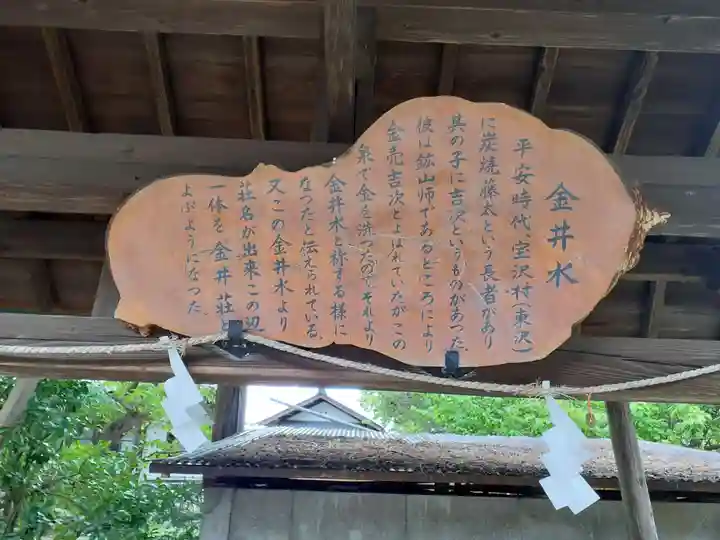 金井水
平安時代、室沢村（東沢）
に炭焼藤太という長者があり
其の子に吉次というものがあった、
彼は鉱山師であるところにより
金売吉次とよばれていたがこの
泉で金を洗ったのでそれより
金井水と称する様に
なつたと伝えられている、
又この金井水より
荘名が出来この辺
一体を金井荘と
よぶようになつた、